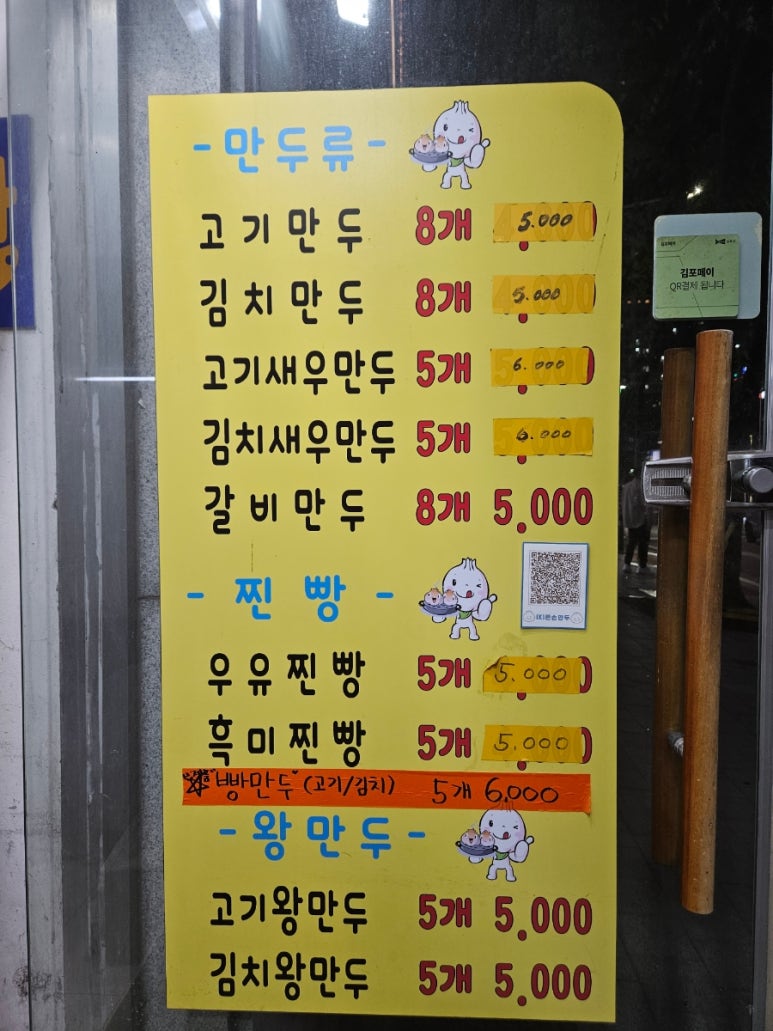 -만두류-
고기만두 8개 5.000
김치만두 8개 5.000
고기새우만두 5개 6.000
김치새우만두 5개 6.000
갈비만두 8개 5,000
- 찐빵 -
우유찐빵 5개 5.000
흑미찐빵 5개 5.000
"빵만두" (고기/김치) 5개 6,000
-왕만두-
고기왕만두 5개 5,000
김치왕만두 5개 5,000
김포페이
김포페이
QR결제 됩니다